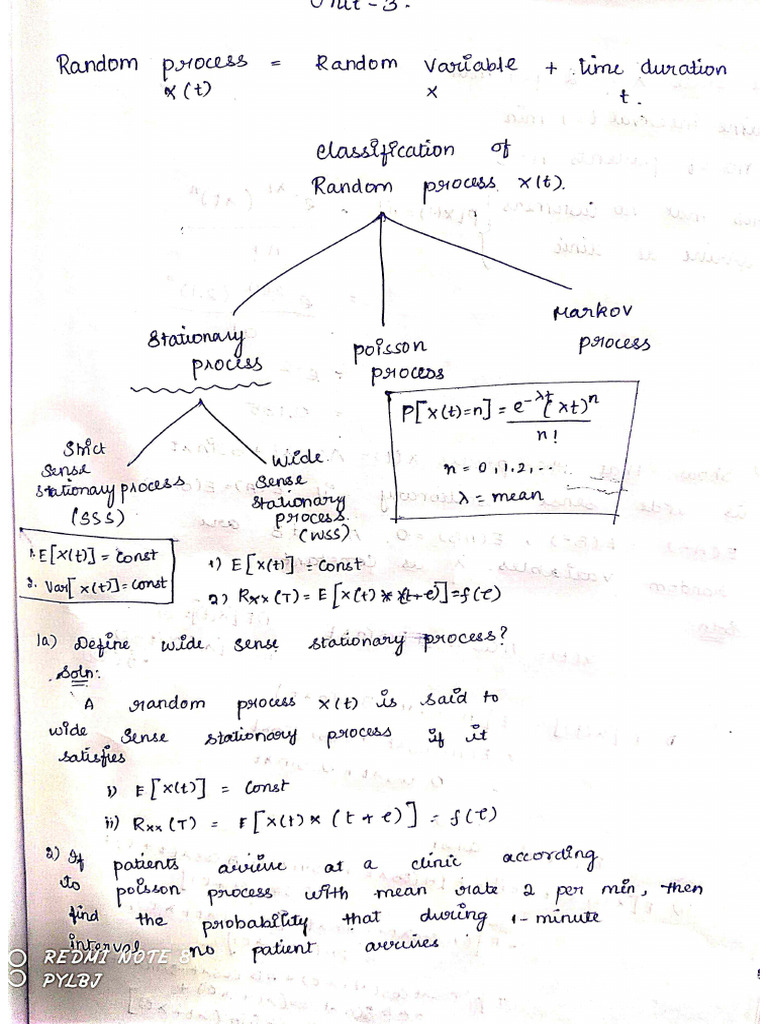 Unit - 3.
Random process = Random variable + time duration
x(t) x t.
classification of
Random process x(t).
Stationary process
poisson process
Markov process
P[x(t)=n] = e^-λt (λt)^n / n!
n = 0,1,2,..
λ = mean
Strict
Sense
stationary process
(SSS)
Wide
Sense
stationary
process
(WSS)
1. E[x(t)] = const
2. Var[x(t)] = const
1) E[x(t)] = const
2) Rxx(T) = E[x(t) * x(t+τ)] = f(τ)
1a) Define wide sense stationary process?
Soln:
A random process x(t) is said to
wide sense stationary process if it
satisfies
i) E[x(t)] = const
ii) Rxx(T) = E[x(t) x (t+τ)] = f(τ)
2) If patients arrive at a clinic according
to poisson process with mean rate 2 per min, then
find the probability that during 1-minute
interval no patient arrives
REDMI NOTE 8
PYLBJ